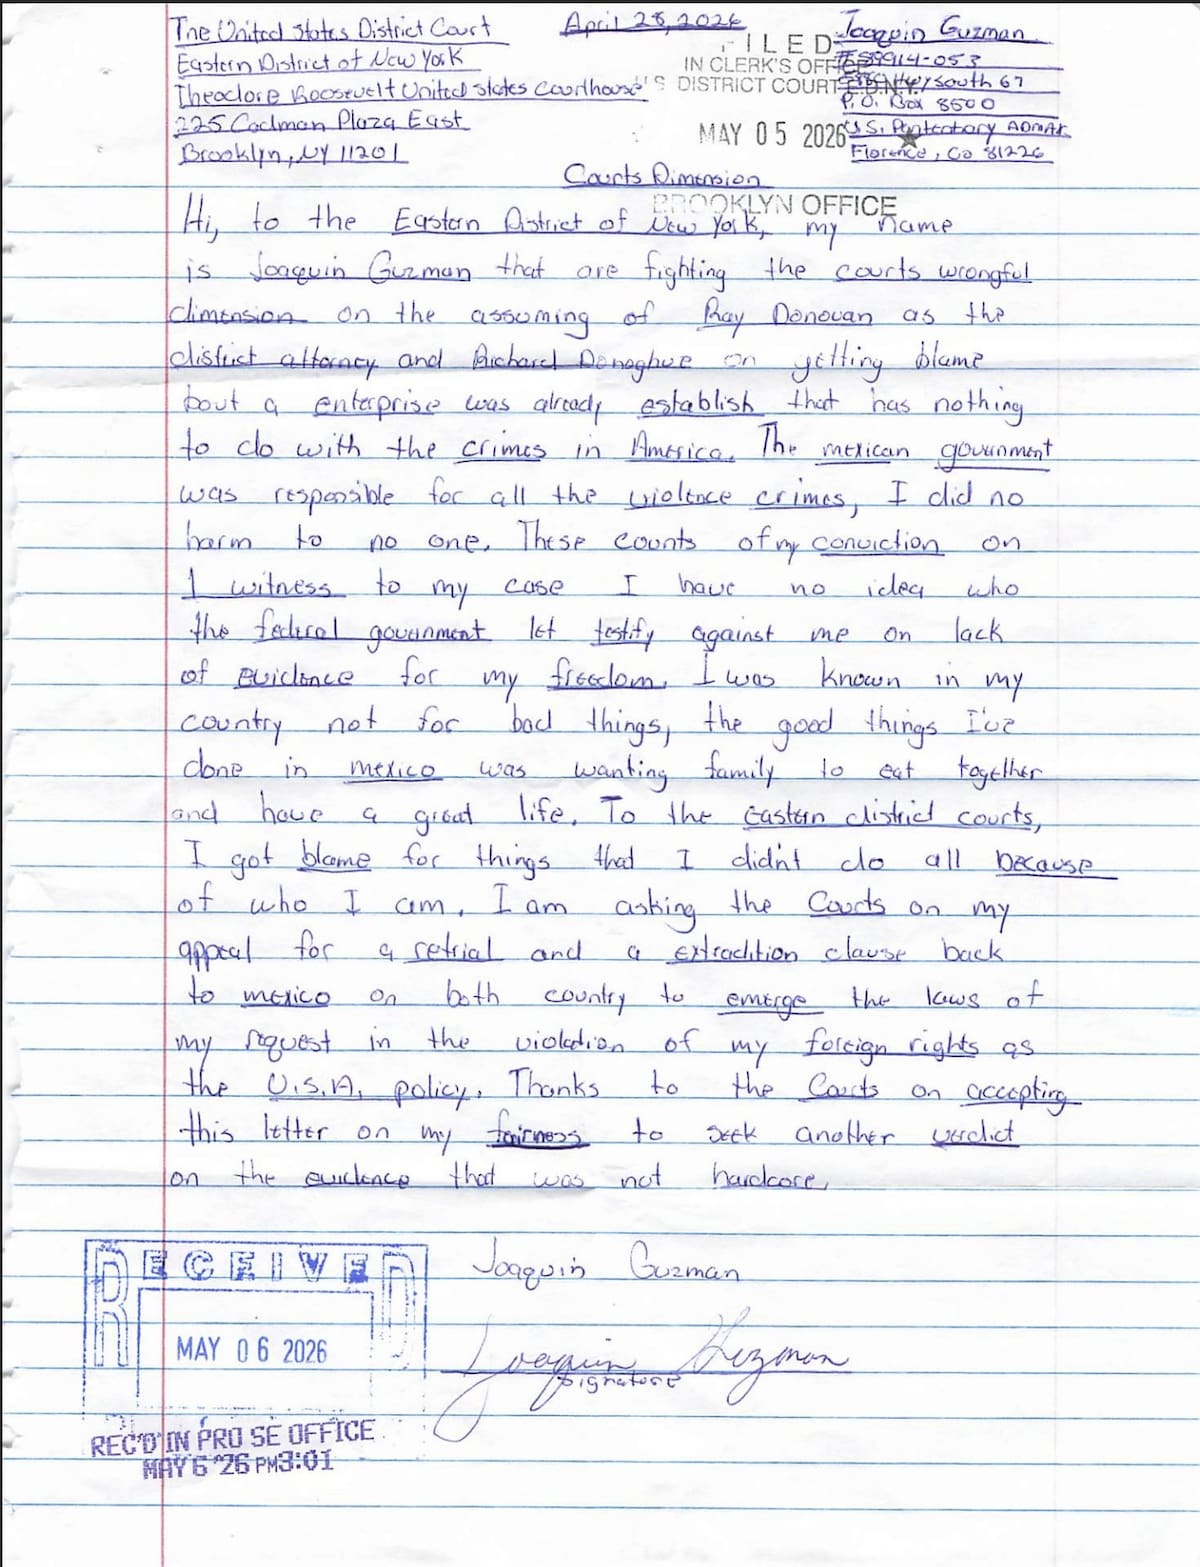 The United States District Court
Eastern District of New York
Theodore Roosevelt United States Courthouse
225 Cadman Plaza East
Brooklyn, NY 11201
April 28, 2026
FILED
IN CLERK'S OFFICE
US DISTRICT COURT E.D.N.Y.
MAY 05 2026 ★
BROOKLYN OFFICE
Joaquin Guzman
#89914-053
Hwy South 67
P.O. Box 8500
U.S. ADMAX
Florence, Co 81226
Courts Dimension
Hi, to the Eastern District of New York, my name
is Joaquin Guzman that are fighting the courts wrongful
dimension on the assuming of Ray Donovan as the
district attorney and Richard Donoghue on getting blame
bout a enterprise was already establish that has nothing
to do with the crimes in America. The mexican government
was responsible for all the violence crimes, I did no
harm to no one. These counts of my conviction on
1 witness to my case I have no idea who
the federal government let testify against me on lack
of evidence for my freedom. I was known in my
country not for bad things, the good things I've
done in mexico was wanting family to eat together
and have a great life. To the Eastern district courts,
I got blame for things that I didn't do all because
of who I am. I am asking the Courts on my
appeal for a retrial and a extradition clause back
to mexico on both country to emerge the laws of
my request in the violation of my foreign rights as
the U.S.A. policy. Thanks to the Courts on accepting
this letter on my fairness to seek another verdict
on the evidence that was not hardcore.
Joaquin Guzman
Joaquin Guzman
Signature
RECEIVED
MAY 06 2026
REC'D IN PRO SE OFFICE
MAY 6 '26 PM3:01